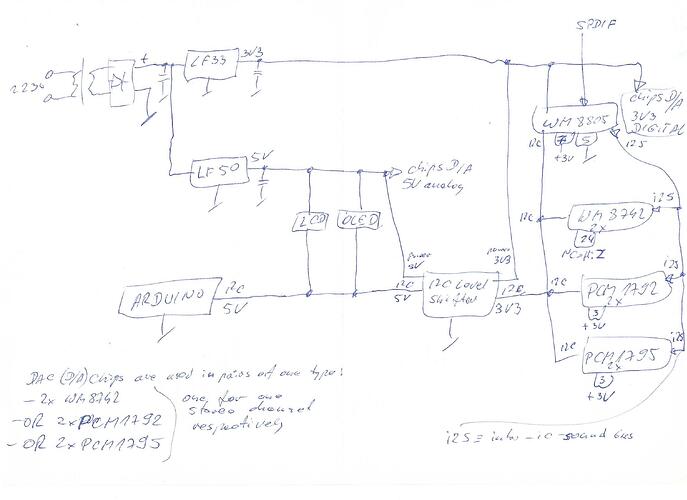 SPDIF
+
LF33
3V3
223V
chips D/A
3V3
DIGITAL
WM8805
I2C
7
5
+3V
I2S
LF50
5V
chips D/A
5V analog
LCD
OLED
I2S
I2C
WM8742
2x
24
NC=Hi.Z
power
5V
power
3V3
I2S
ARDUINO
I2C
5V
I2C
5V
I2C Level
Shifter
I2C
3V3
I2C
PCM1792
2x
3
+3V
I2S
I2C
PCM1795
2x
3
+3V
DAC (D/A) chips are used in pairs of one type:
- 2x WM8742
- OR 2xPCM1792
- OR 2xPCM1795
one for one
stereo channel
respectively
i2S = inter-ic-sound bus